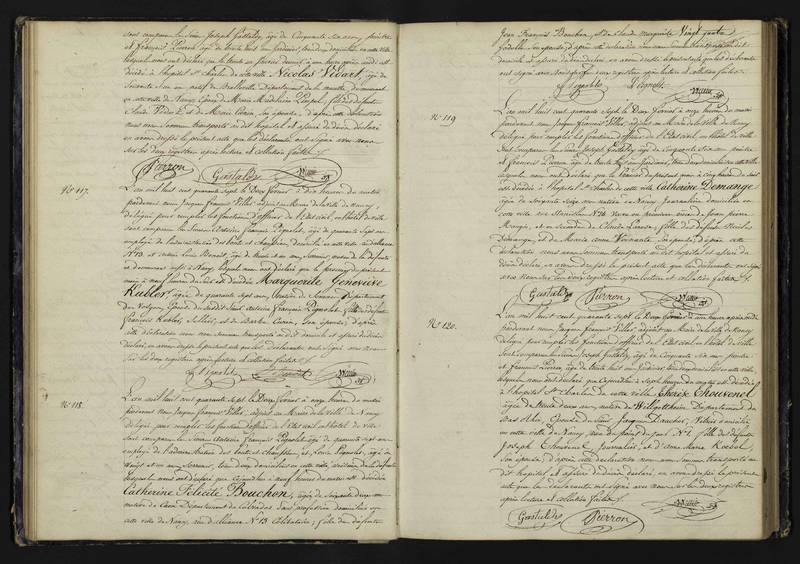 sont comparus les Sieurs Joseph Gastaldy, âgé de Cinquante six ans, peintre
et François Pierron, âgé de trente huit ans, Jardinier, tous deux domiciliés en cette ville
lesquels nous ont déclaré que le trente un Janvier dernier à une heure après midi est
décédé à l'hôpital St Charles de cette ville Nicolas Vidart, âgé de
Soixante Six ans natif de Département de la meurthe demeurant
en cette ville de Nancy Époux de Marie Madeleine fils des défunts
et de Marie son épouse, d'après cette déclaration
nous nous sommes transporté au dit hôpital et assuré de décès déclaré
en avons dressé le présent acte que les déclarants ont signé avec nous
sur les deux registres après lecture et collation faites.
Pierron Gastaldy
No 117.
L'an mil huit cent quarante Sept le Deux février à dix heures du matin
pardevant nous Jacques François Villers, adjoint au Maire de la Ville de Nancy,
délégué pour remplir les fonctions d'officier de l'État civil, en l'hôtel de ville
sont comparus les Sieurs Antoine François Pignolet, âgé de quarante Sept ans
employé de l'administration des ponts et chaussées, domicilié en cette ville
No 13 et
et demeurant aussi à Nancy, lesquels nous ont déclaré que le premier du présent
mois à neuf heures du soir est décédée Marguerite Geneviève
Kubler, âgée de quarante Sept ans, native de Département
des Vosges, Épouse du dit Sieur Antoine François Pignolet, fille de défunt
François Kubler, Sellier, et de Barbe son épouse, d'après
cette déclaration nous nous sommes transporté au dit domicile et assuré du décès
déclaré, en avons dressé le présent acte que les Déclarants ont Signé avec nous
Sur les deux registres après lecture et collation faites.
Pignolet
No 118.
L'an mil huit cent quarante Sept le Deux février, à onze heures du matin
pardevant nous Jacques François Villers, adjoint au Maire de la Ville de Nancy
délégué pour remplir les fonctions d'officier de l'État civil, en l'hôtel de ville
sont comparus les Sieurs Antoine François Pignolet âgé de quarante Sept ans
employé de l'administration des ponts et chaussées, et Louis Pignolet, âgé de
Vingt et un ans tous deux domiciliés en cette ville,
lesquels nous ont déclaré que aujourd'hui à neuf heures du matin est décédée
Catherine Félicité Bouchon, âgée de Soixante deux ans
native de Caen Département du Calvados Sans profession domiciliée en
cette ville de Nancy, rue d'alliance No 13 Célibataire, fille des défunts
Jean François Bouchon, et de Claude Marguerite Vingt quatre
son épouse, d'après cette déclaration nous nous sommes transporté au dit
domicile et assuré du décès déclaré, en avons dressé le présent acte que les déclarants
ont Signé avec nous sur les deux registres après lecture et collation faites.
Pignolet L. Pignolet
No 119
L'an mil huit cent quarante Sept le Deux février à onze heures du matin
pardevant nous Jacques François Villers, adjoint au Maire de la Ville de Nancy
délégué pour remplir les fonctions d'officier de l'État civil, en l'hôtel de ville
Sont comparus les Sieurs Joseph Gastaldy, âgé de Cinquante Six ans peintre
et François Pierron, âgé de trente huit ans, Jardinier, tous deux domiciliés en cette ville
lesquels nous ont déclaré que le Premier du présent mois à cinq heures du soir
est décédée à l'hôpital St Charles de cette ville Catherine Demange
âgée de Soixante Sept ans native de Nancy Journalière domiciliée en
cette ville rue Stanislas No 74 Veuve en premières noces de Jean pierre
Mongin, et en Secondes de Claude fille des défunts Nicolas
Demange, et de Marie anne son épouse, d'après cette
déclaration nous nous sommes transporté au dit hôpital et assuré du
décès déclaré, en avons dressé le présent acte que les déclarants ont signé
avec nous sur les deux registres après lecture et collation faites.
Gastaldy Pierron
No 120.
L'an mil huit cent quarante Sept le Deux février à une heure après midi
pardevant nous Jacques François Villers, adjoint au Maire de la Ville de Nancy
délégué pour remplir les fonctions d'officier de l'État civil, en l'hôtel de Ville
Sont comparus les Sieurs Joseph Gastaldy, âgé de Cinquante Six ans peintre
et François Pierron, âgé de trente huit ans Jardinier, tous deux domiciliés en cette ville
lesquels nous ont déclaré que aujourd'hui à Sept heures du matin est décédée
à l'hôpital St Charles de cette ville Thérèse Thouvenel
âgée de trente deux ans, native de Willgottheim Département du
Bas Rhin, Épouse du Sieur Jacques domicilié
en cette ville de Nancy, rue du faubourg No 1, fille de défunt
Joseph Thouvenel Journalier, et d'Anne Marie Koebel
son épouse, d'après cette déclaration nous nous sommes transporté au
dit hôpital et assuré du décès déclaré, en avons dressé le présent
acte que les déclarants ont Signé avec nous sur les deux registres
après lecture et collation faites.
Gastaldy Pierron